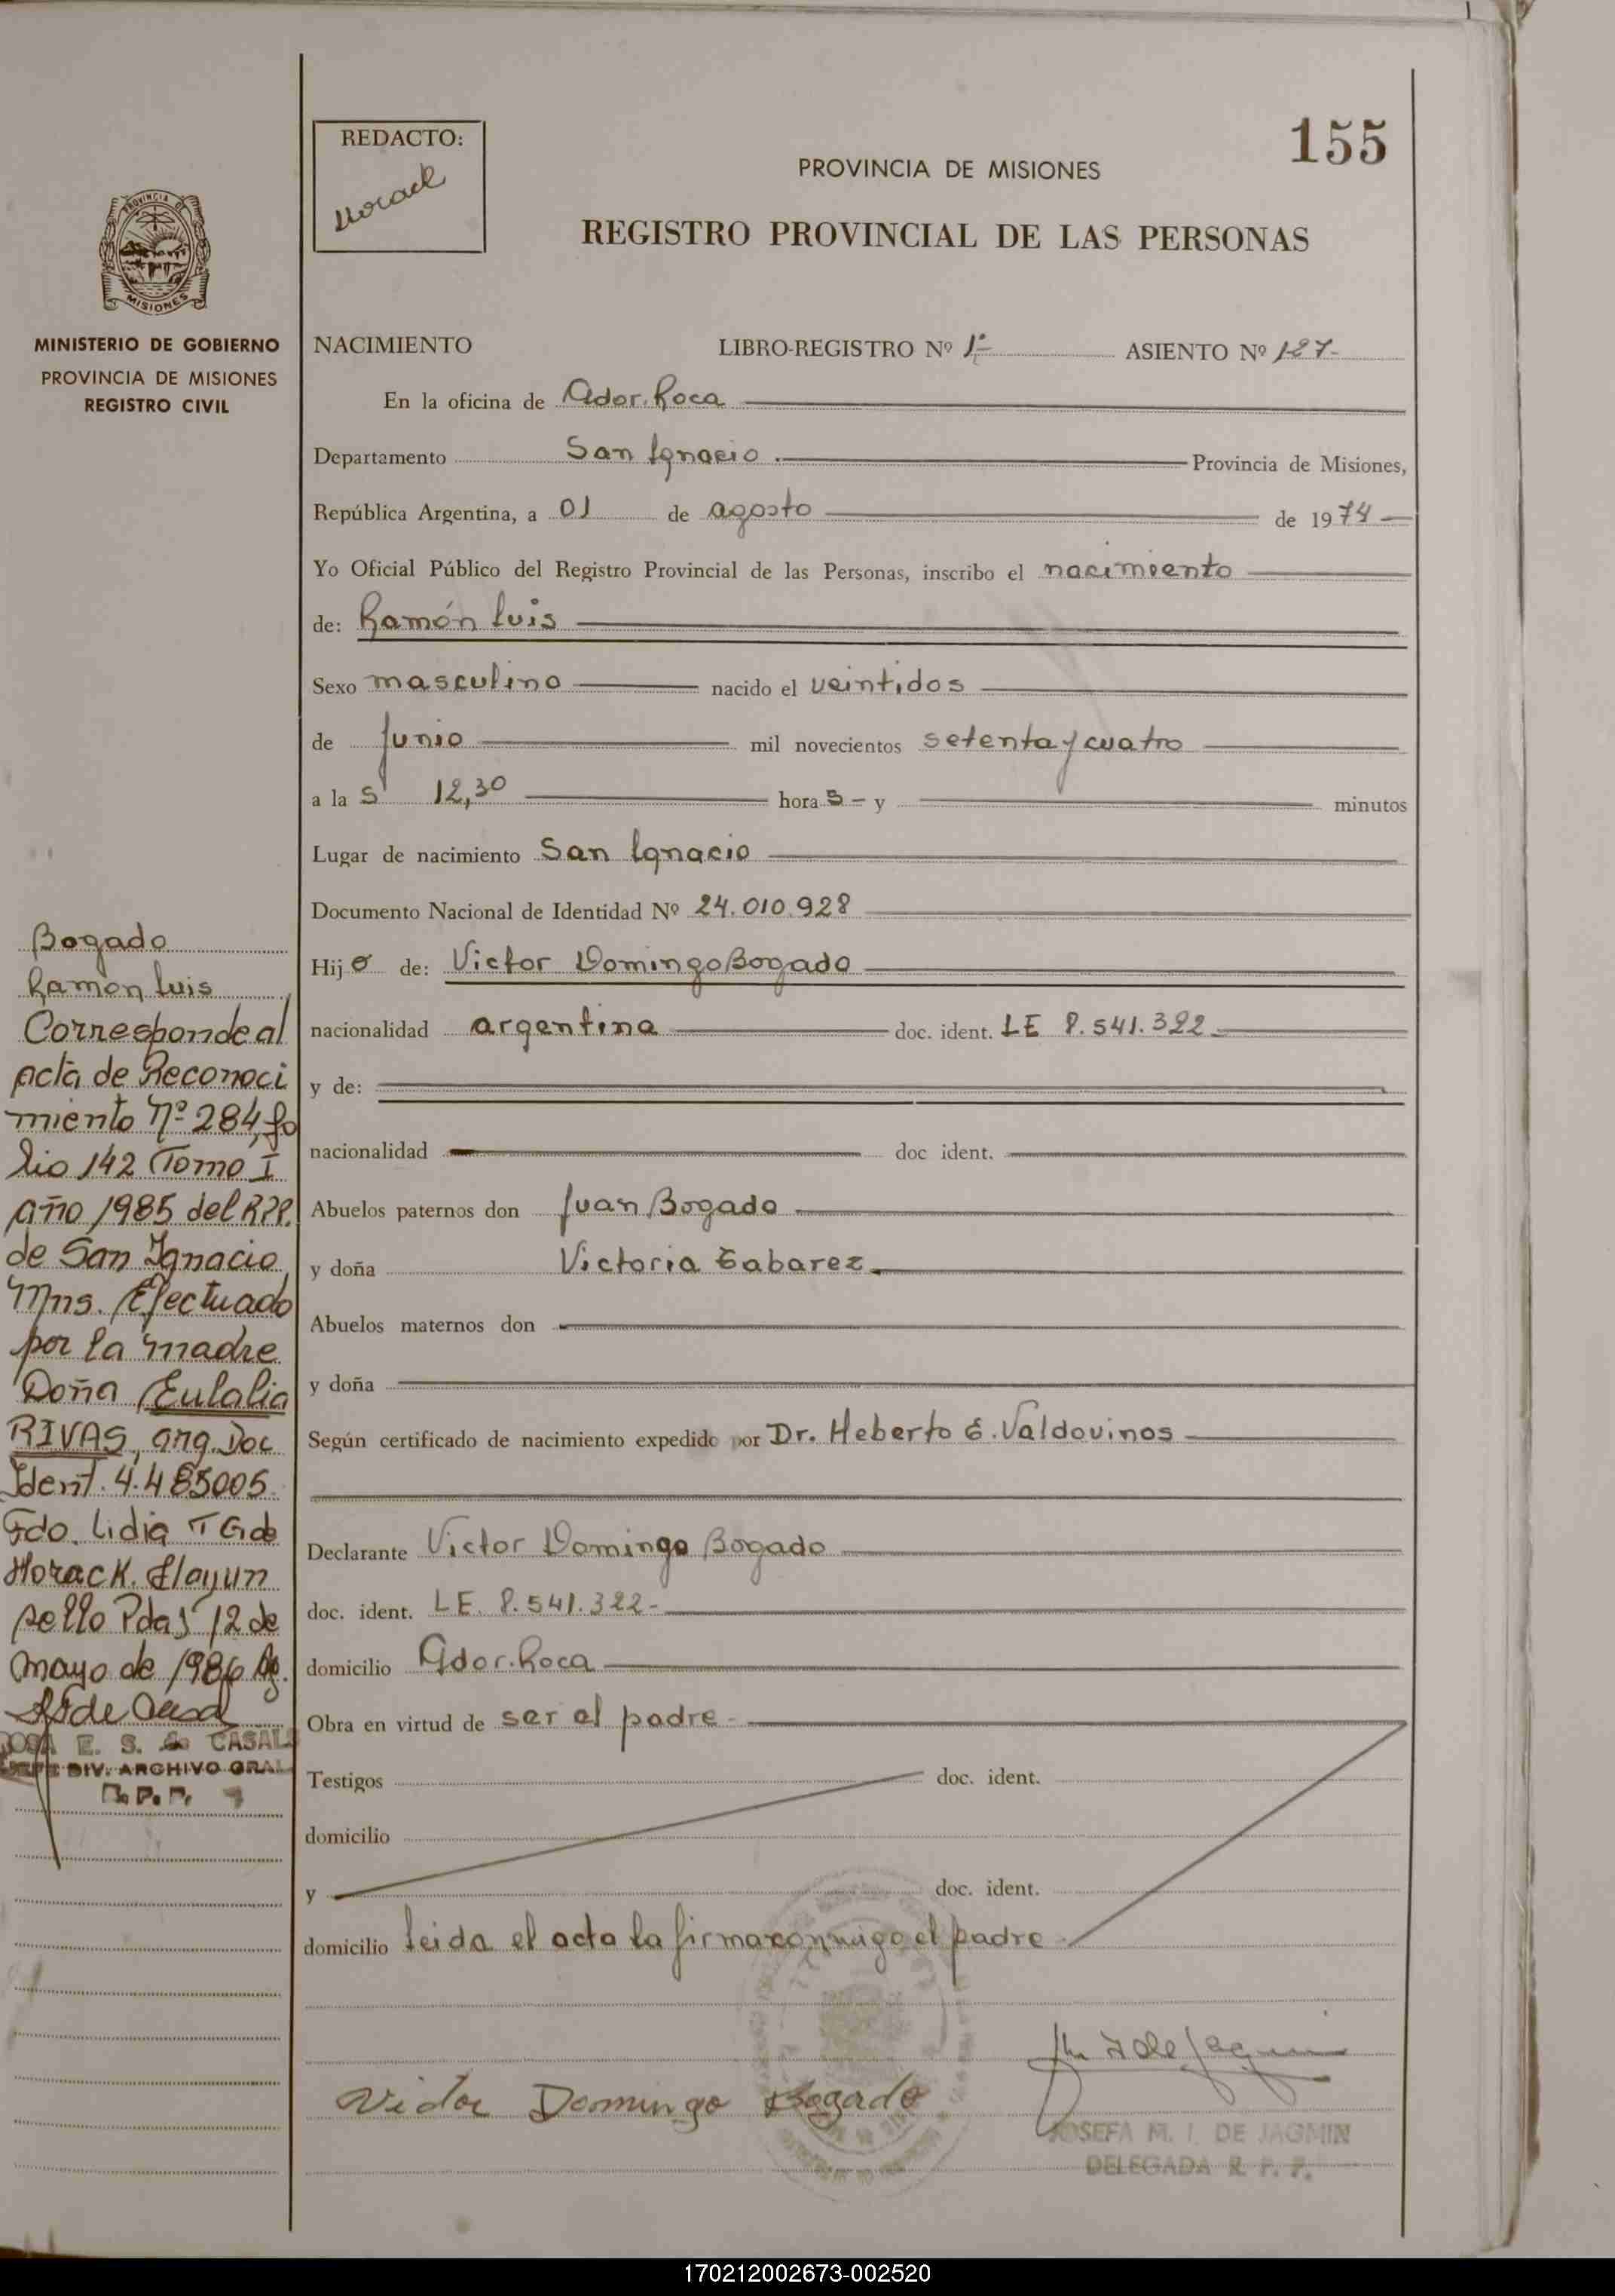 155
REDACTO:
Horack
PROVINCIA DE MISIONES
REGISTRO PROVINCIAL DE LAS PERSONAS
PROVINCIA DE
MISIONES
MINISTERIO DE GOBIERNO
PROVINCIA DE MISIONES
REGISTRO CIVIL
NACIMIENTO LIBRO-REGISTRO Nº 1º ASIENTO Nº 127-
En la oficina de Gdor. Roca
Departamento San Ignacio. Provincia de Misiones,
República Argentina, a 01 de agosto de 1974
Yo Oficial Público del Registro Provincial de las Personas, inscribo el nacimiento
de: Ramón Luis
Sexo masculino nacido el veintidos
de Junio mil novecientos setenta y cuatro
a la s 12,30 hora s - y minutos
Lugar de nacimiento San Ignacio
Documento Nacional de Identidad Nº 24.010.928
Hij o de: Victor Domingo Bogado
nacionalidad argentina doc. ident. LE 8.541.322
y de:
nacionalidad doc ident.
Abuelos paternos don Juan Bogado
y doña Victoria Tabarez
Abuelos maternos don
y doña
Según certificado de nacimiento expedido por Dr. Heberto E. Valdovinos
Declarante Victor Domingo Bogado
doc. ident. LE. 8.541.322-
domicilio Gdor. Roca
Obra en virtud de ser el padre-
Testigos doc. ident.
domicilio
y doc. ident.
domicilio leida el acta la firma conmigo el padre
Victor Domingo Bogado
JOSEFA M. I. DE JAGMIN
DELEGADA R. P. P.
Bogado
Ramon Luis
Corresponde al
acta de Reconoci
miento Nº 284, fo
lio 142 Tomo I
año 1985 del R.P.P.
de San Ignacio
Mns. Efectuado
por la madre
Doña Eulalia
RIVAS, arg. Doc
Ident. 4.485005.
Fdo. Lidia T G de
Horack. Hay un
sello Pdas 12 de
mayo de 1986
ROSA E. S. de CASALS
JEFE DIV. ARCHIVO GRAL
R. P. P.
170212002673-002520